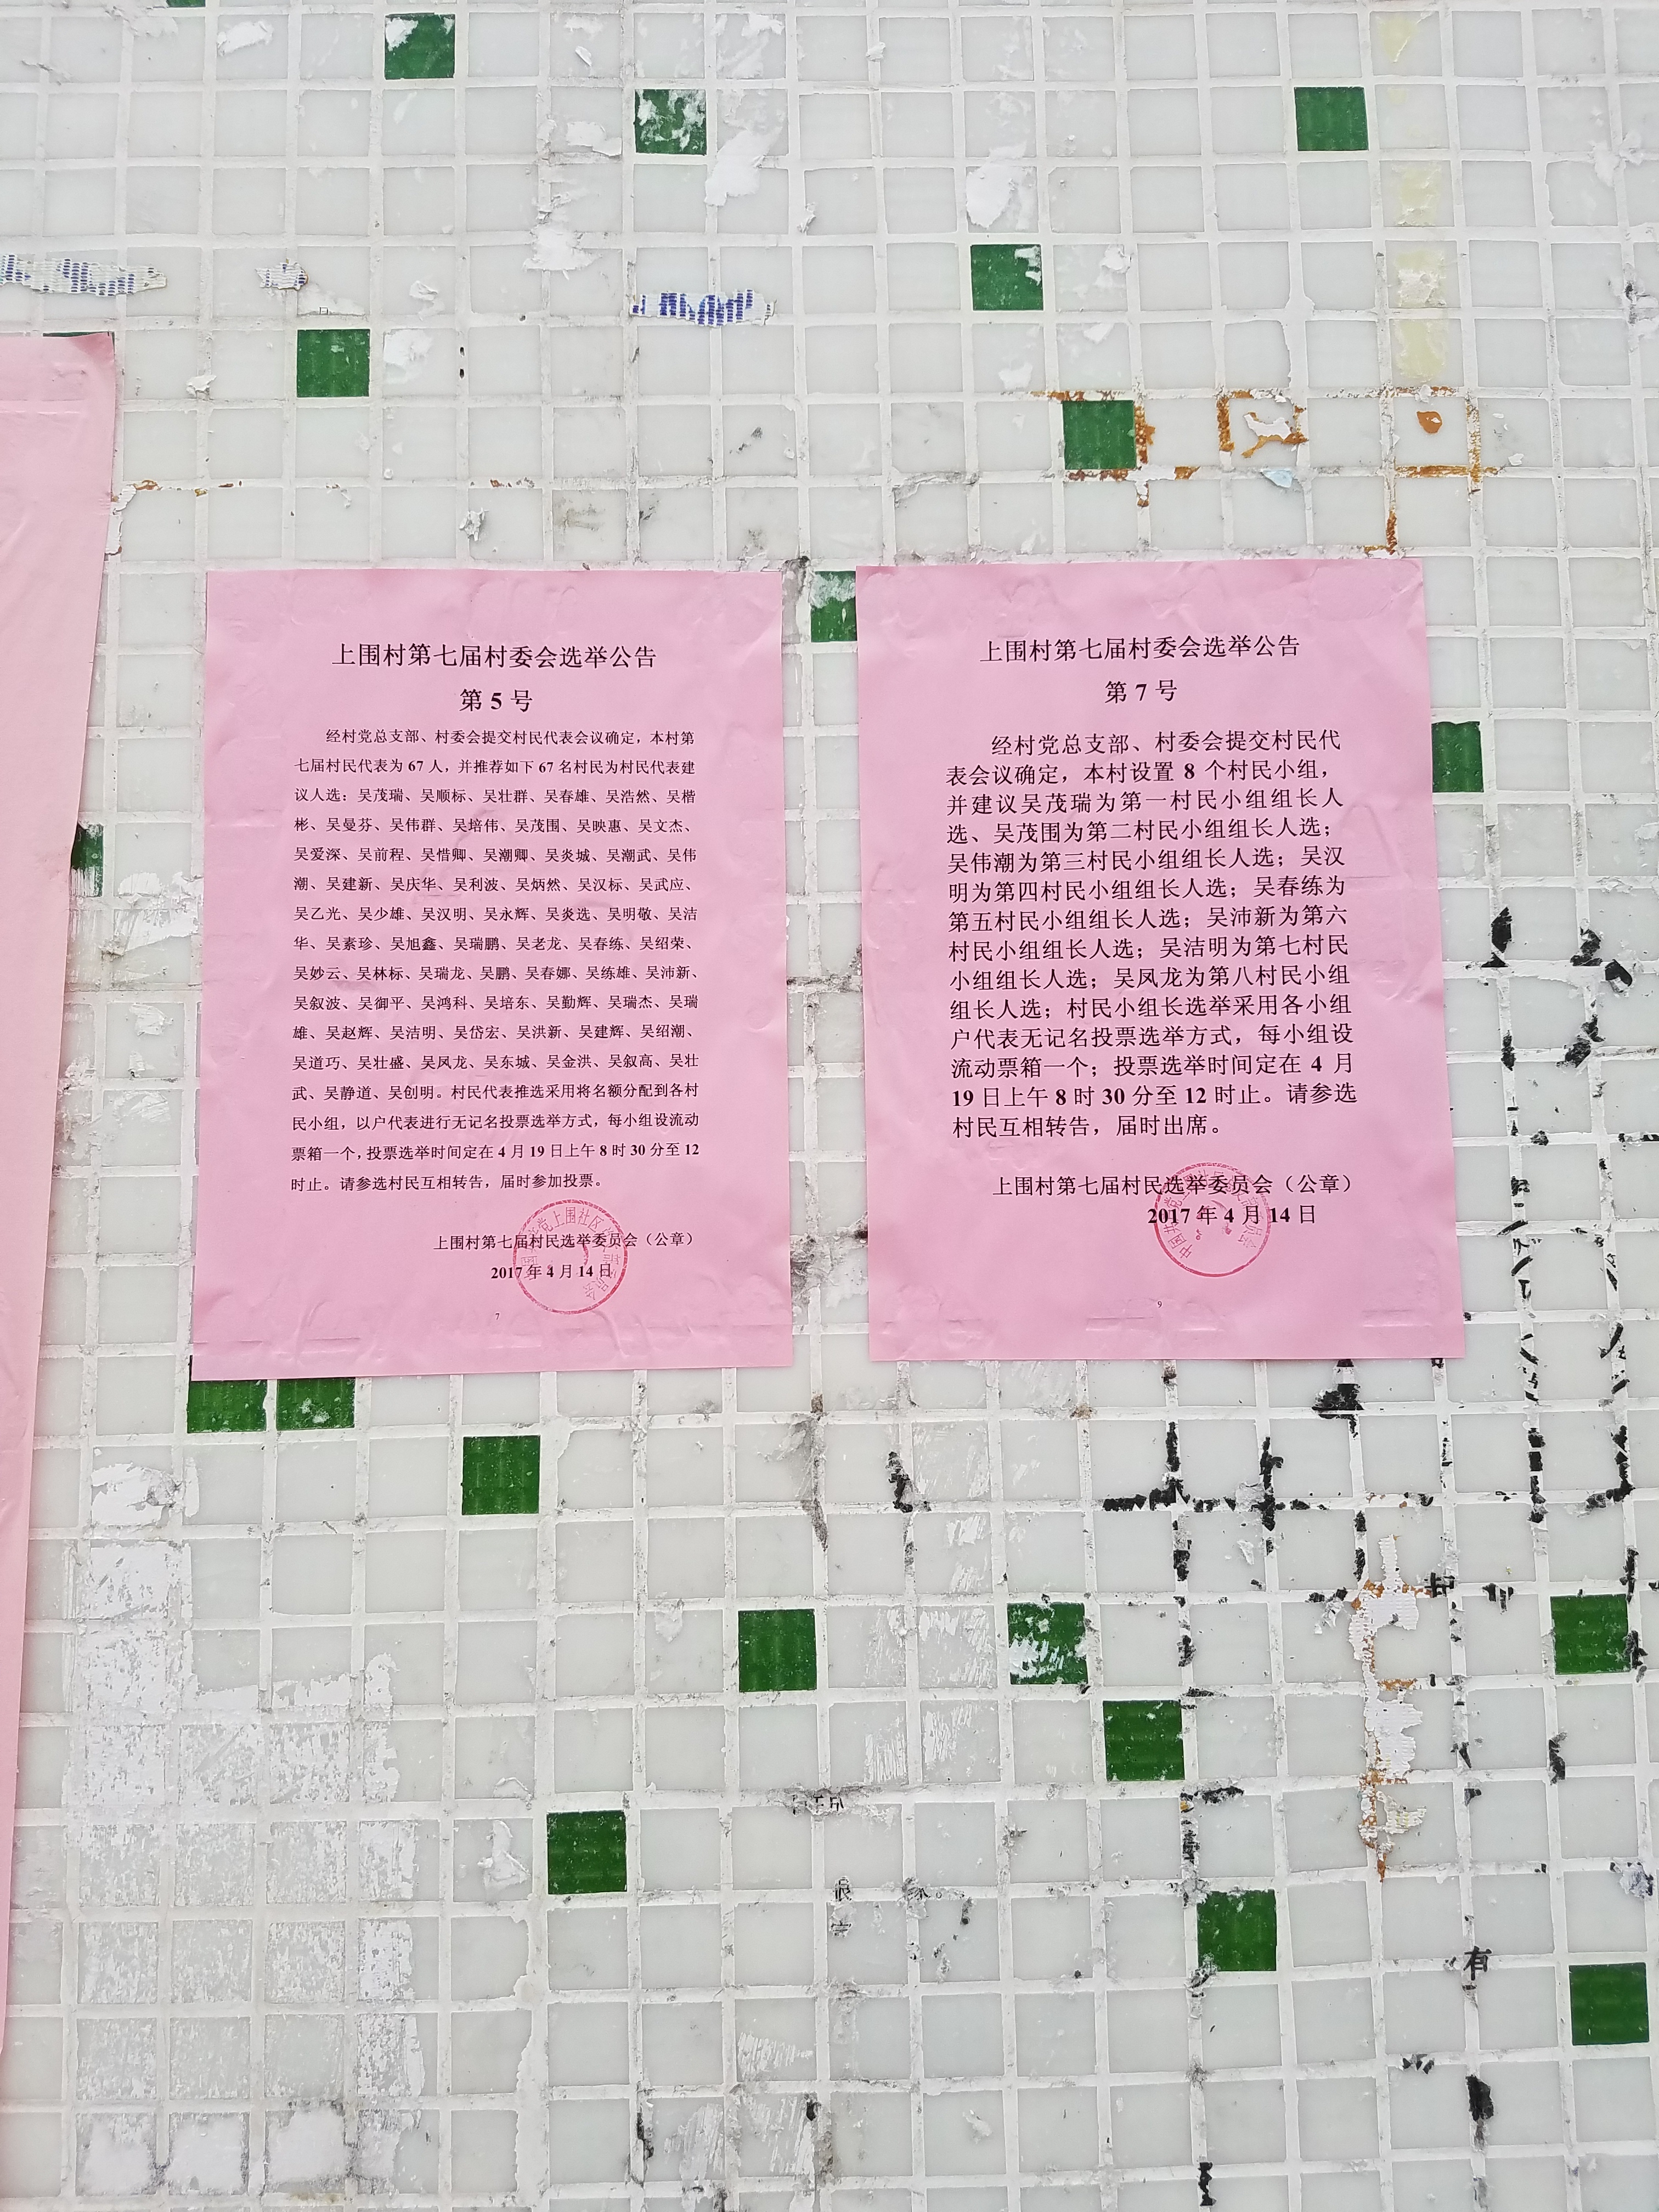 上围村第七届村委会选举公告
第 5 号
经村党总支部、村委会提交村民代表会议确定，本村第
七届村民代表为 67 人，并推荐如下 67 名村民为村民代表建
议人选：吴茂瑞、吴顺标、吴壮群、吴春雄、吴浩然、吴楷
彬、吴曼芬、吴伟群、吴培伟、吴茂围、吴映惠、吴文杰、
吴爱深、吴前程、吴惜卿、吴潮卿、吴炎城、吴潮武、吴伟
潮、吴建新、吴庆华、吴利波、吴炳然、吴汉标、吴武应、
吴乙光、吴少雄、吴汉明、吴永辉、吴炎选、吴明敬、吴洁
华、吴素珍、吴旭鑫、吴瑞鹏、吴老龙、吴春练、吴绍荣、
吴妙云、吴林标、吴瑞龙、吴鹏、吴春娜、吴练雄、吴沛新、
吴叙波、吴御平、吴鸿科、吴培东、吴勤辉、吴瑞杰、吴瑞
雄、吴赵辉、吴洁明、吴岱宏、吴洪新、吴建辉、吴绍潮、
吴道巧、吴壮盛、吴凤龙、吴东城、吴金洪、吴叙高、吴壮
武、吴静道、吴创明。村民代表推选采用将名额分配到各村
民小组，以户代表进行无记名投票选举方式，每小组设流动
票箱一个，投票选举时间定在 4 月 19 日上午 8 时 30 分至 12
时止。请参选村民互相转告，届时参加投票。
上围村第七届村民选举委员会（公章）
2017 年 4 月 14 日
7
上围村第七届村委会选举公告
第 7 号
经村党总支部、村委会提交村民代
表会议确定，本村设置 8 个村民小组，
并建议吴茂瑞为第一村民小组组长人
选、吴茂围为第二村民小组组长人选；
吴伟潮为第三村民小组组长人选；吴汉
明为第四村民小组组长人选；吴春练为
第五村民小组组长人选；吴沛新为第六
村民小组组长人选；吴洁明为第七村民
小组组长人选；吴凤龙为第八村民小组
组长人选；村民小组长选举采用各小组
户代表无记名投票选举方式，每小组设
流动票箱一个；投票选举时间定在 4 月
19 日上午 8 时 30 分至 12 时止。请参选
村民互相转告，届时出席。
上围村第七届村民选举委员会（公章）
2017 年 4 月 14 日
9
有